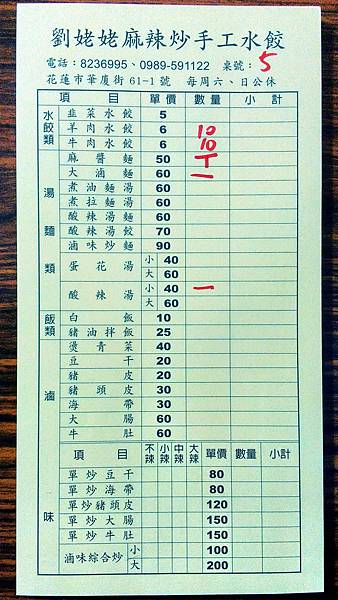 劉姥姥麻辣炒手工水餃
電話：8236995、0989-591122 桌號：5
花蓮市華廈街61-1號 每周六、日公休
項目 單價 數量 小計
水餃類
韭菜水餃 5
羊肉水餃 6 10
牛肉水餃 6 10
湯麵類
麻醬麵 50 T
大滷麵 60 一
煮油麵湯 60
煮拉麵湯 60
酸辣湯麵 60
酸辣湯餃 70
滷味炒麵 90
蛋花湯 小 40
大 60
酸辣湯 小 40 一
大 60
飯類
白飯 10
豬油拌飯 25
滷味
燙青菜 40
豆干 20
豬皮 20
豬頭皮 30
海帶 30
大腸 60
牛肚 60
項目 不辣 小辣 中辣 大辣 單價 數量 小計
單炒豆干 80
單炒海帶 80
單炒豬頭皮 120
單炒大腸 150
單炒牛肚 150
滷味綜合炒 小 100
大 200